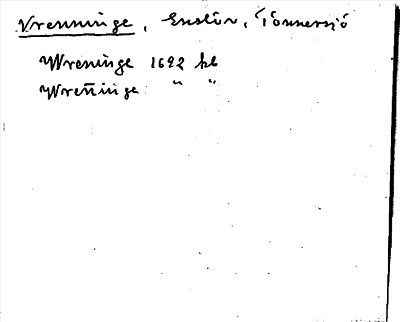 Vrenninge, Enslöv, Tönnersjö
Wreninge 1692 kb
Wren̄inge " "